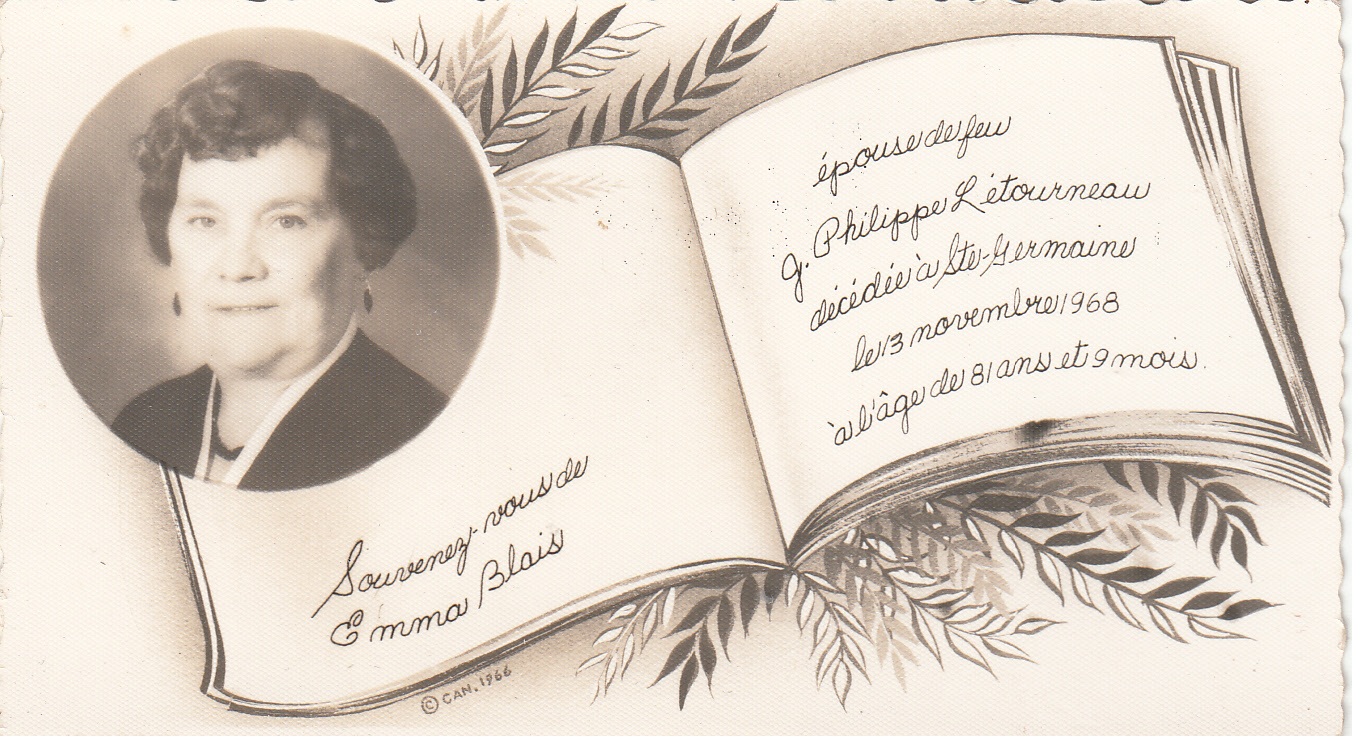 Souvenez-vous de
Emma Blais
épouse de feu
J. Philippe Létourneau
décédée à Ste-Germaine
le 13 novembre 1968
à l'âge de 81 ans et 9 mois.
© CAN. 1966